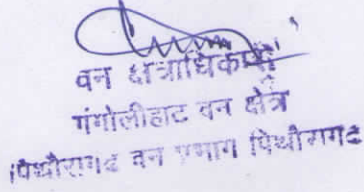 वन क्षेत्राधिकारी
गंगोलीहाट वन क्षेत्र
पिथौरागढ वन प्रभाग पिथौरागढ